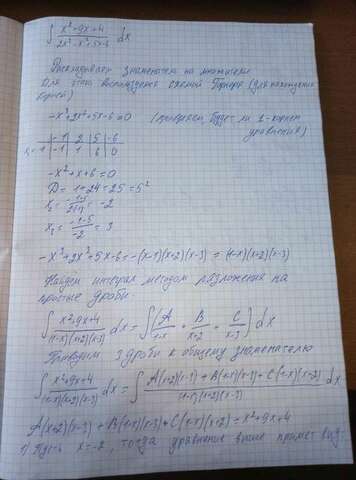 ∫ x²+9x+4 / 2x²-x³+5x-6 dx
Раскладываем знаменатель на множители
Для этого воспользуемся схемой Горнера (для нахождения
корней)
-x³+2x²+5x-6=0 (проверим, будет ли 1 - корнем
уравнения)
-1 2 5 -6
x₁=1 -1 1 6 0
-x²+x+6=0
D=1+24=25=5²
x₂= -1+5 / -2 = -2
x₃= -1-5 / -2 = 3
-x³+2x²+5x-6=-(x-1)(x+2)(x-3) = (1-x)(x+2)(x-3)
Найдём интеграл методом разложения на
простые дроби
∫ x²+9x+4 / (1-x)(x+2)(x-3) dx = ∫ ( A / 1-x + B / x+2 + C / x-3 ) dx
Приводим 3 дроби к общему знаменателю
∫ x²+9x+4 / (1-x)(x+2)(x-3) dx = ∫ A(x+2)(x-3)+B(1-x)(x-3)+C(1-x)(x+2) / (1-x)(x+2)(x-3) dx
A(x+2)(x-3)+B(1-x)(x-3)+C(1-x)(x+2)=x²+9x+4
1) Пусть x=-2, тогда уравнение выше примет вид: